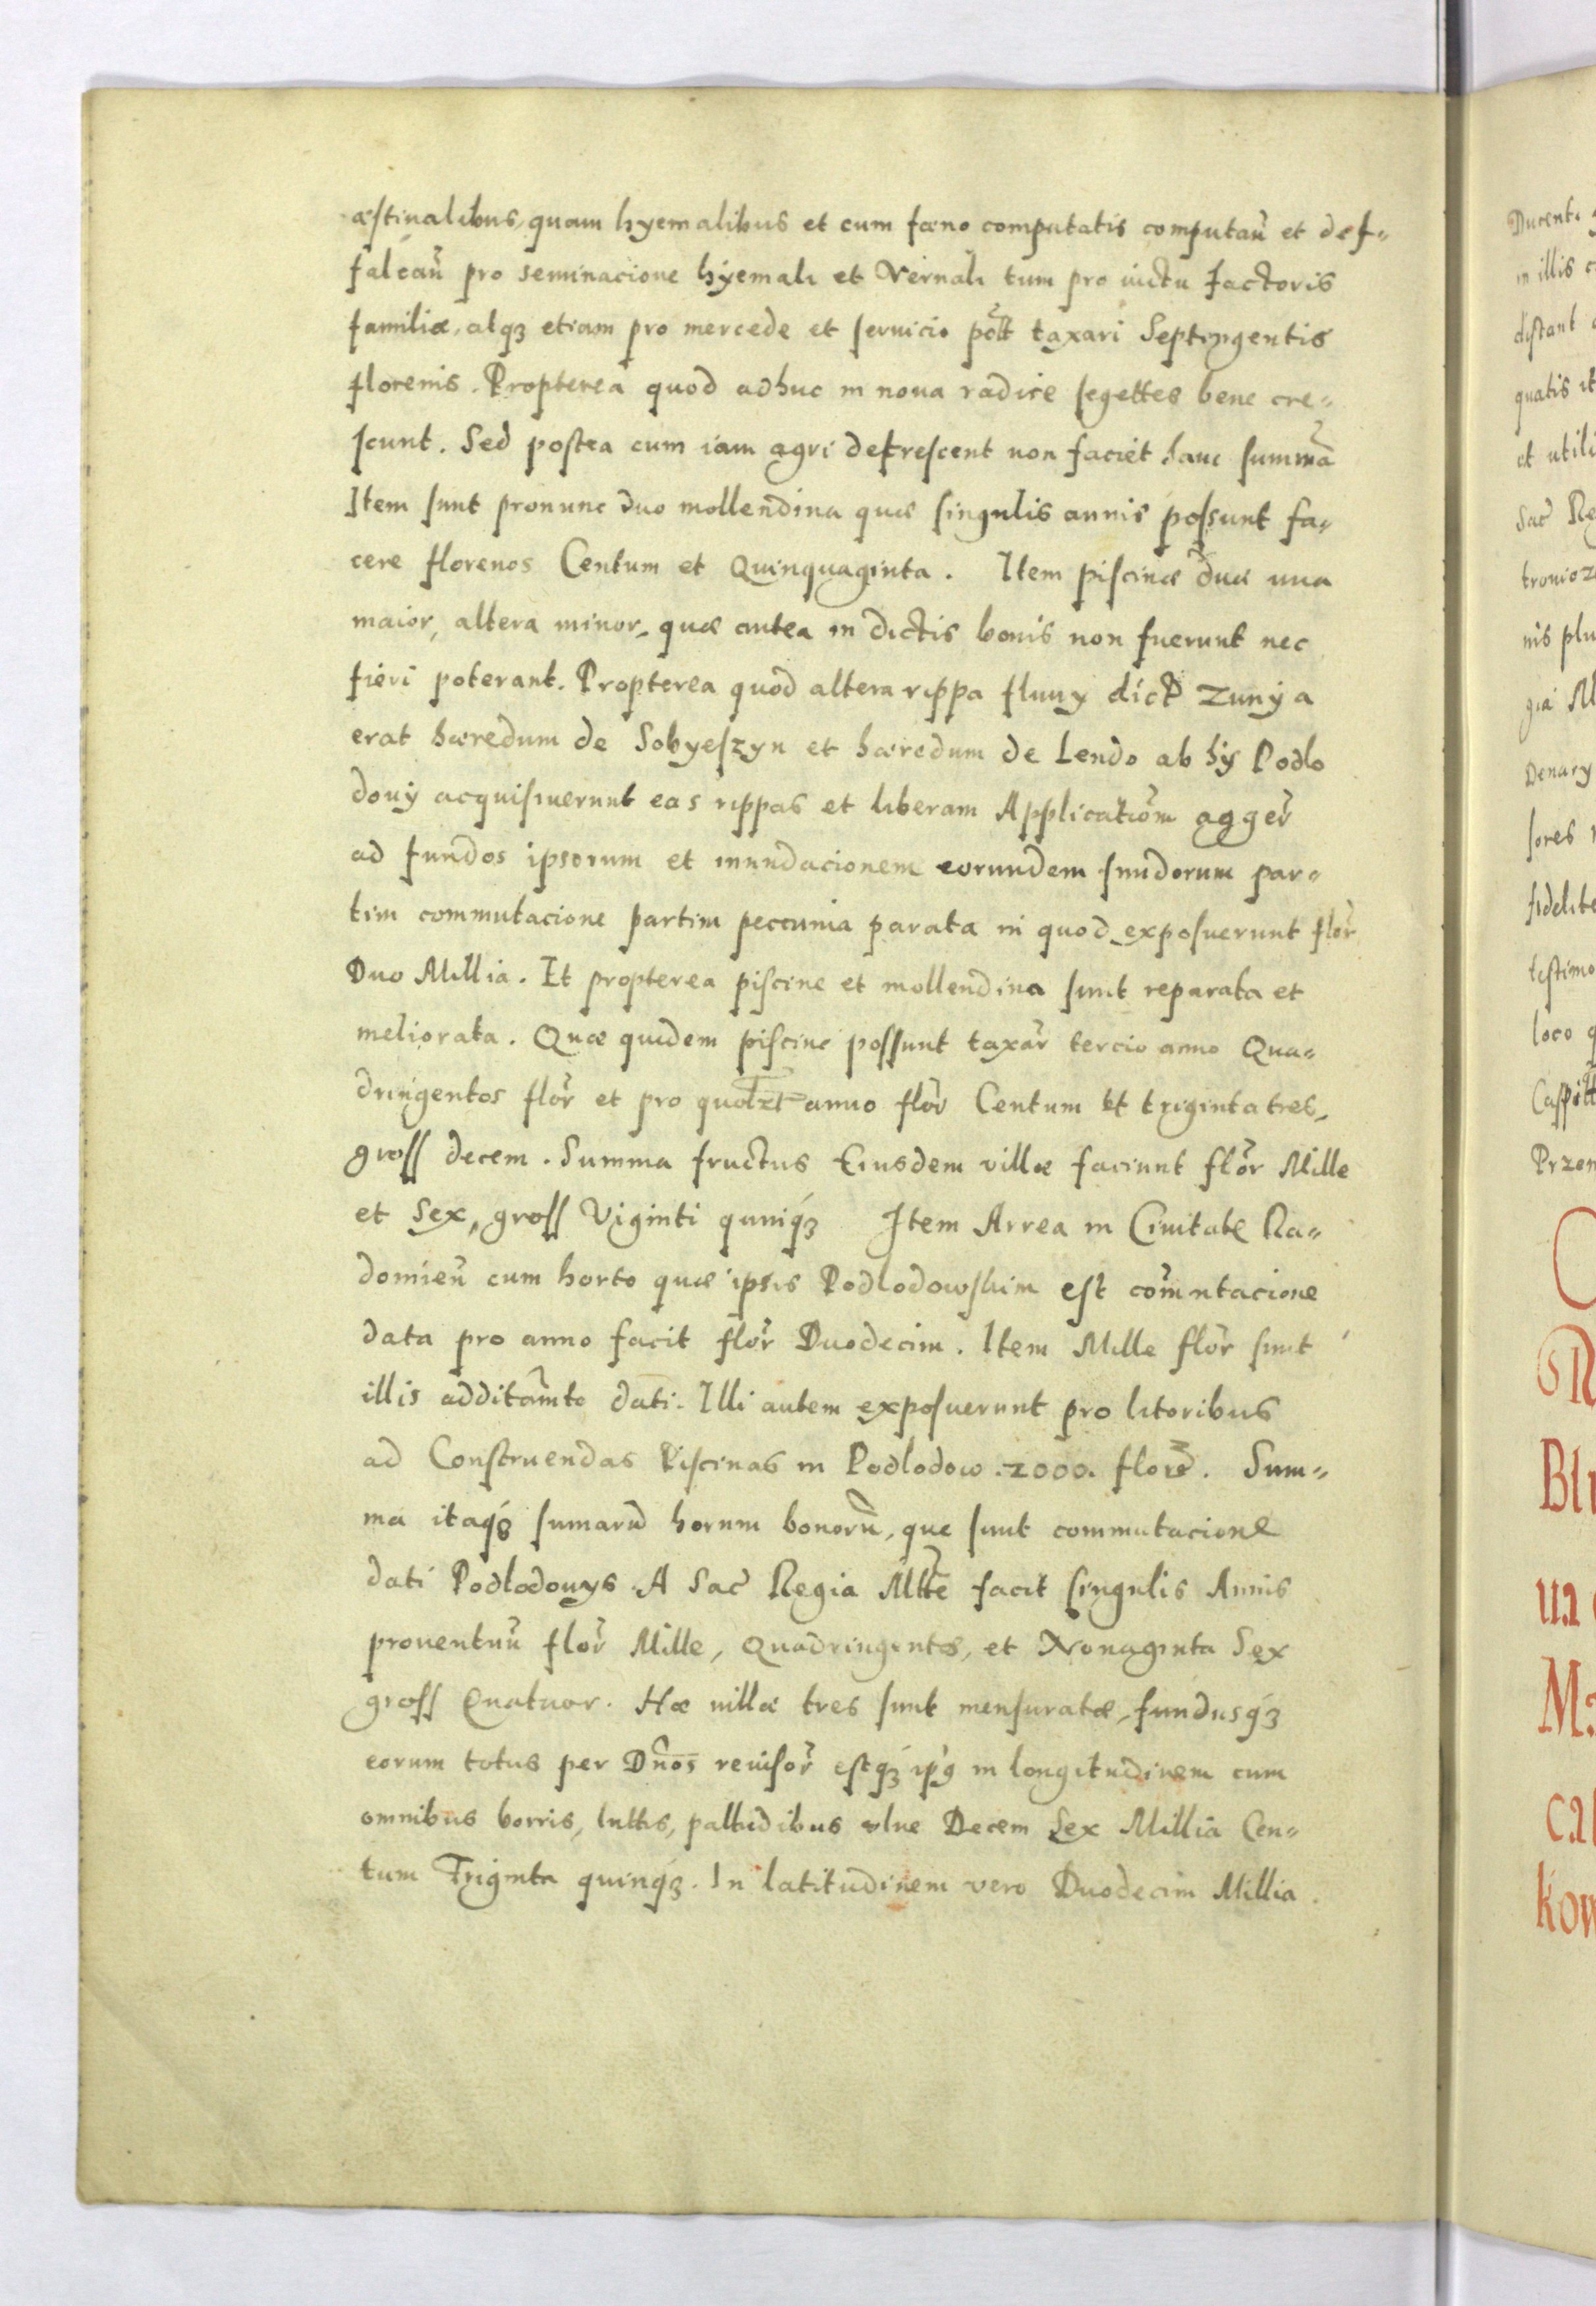 æstiualibus, quam hyemalibus et cum fæno computatis computau̅ et def-
falcau̅ pro seminacione hyemali et Vernali tum pro uictu factoris
familiæ, atqȝ etiam pro mercede et seruicio pot̅t taxari Septingentis
florenis. Propterea quod adhuc in noua radice segettes bene cre-
scunt. Sed postea cum iam agri defrescent non faciet hanc summa̅
Item sunt pronunc duo mollendina quæ singulis annis possunt fa-
cere florenos Centum et Quinquaginta. Item piscinæ duæ una
maior, altera minor, quæ antea in dictis bonis non fuerunt nec
fieri poterant. Propterea quod altera rippa fluuy dict Zuny a
erat hæredum de Sobyeszyn et hæredum de Lendo ab hys Podlo
douy acquisiuerunt eas rippas et liberam Applicatiom̅ agger̅
ad fundos ipsorum et inundacionem eorundem fundorum par-
tim commutacione partim peccunia parata in quod exposuerunt flor̅
Duo Millia. Et propterea piscine et mollendina sunt reparata et
meliorata. Quæ quidem piscine possunt taxar̅ tercio anno Qua-
dringentos flor̅ et pro quolzt anno flor̅ Centum et triginta tres,
gross decem. Summa fructus Eiusdem villæ faciunt flor̅ Mille
et Sex, gross Viginti quinqȝ Item Arrea in Ciuitate Ra-
domien̅ cum horto quæ ipsis Podlodowskim est com̅utacione
data pro anno facit flor̅ Duodecim. Item Mille flor̅ sunt
illis addita̅mto dati. Illi autem exposuerunt pro litoribus
ad Construendas Piscinas in Podlodow .2000. flore̅. Sum-
ma itaqȝ sumaru̅ horum bonoru̅, que sunt commutacione
dati Podlodouys A Sac̅ Regia Mtte̅ facit singulis Annis
prouentuu̅ flor̅ Mille, Quadringentos, et Nonaginta Sex
gross Quatuor. Hæ uillæ tres sunt mensuratæ, fundusqȝ
eorum totus per Dn̅os reuisor̅ estqȝ ipg in longitudinem cum
omnibus borris, luttis, palludibus Decem Sex Millia Cen-
tum Triginta quinqȝ. In latitudinem vero Duodecim Millia.